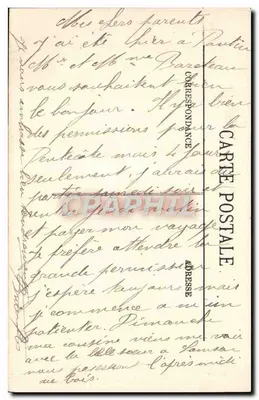 Mes chers parents
J'ai été hier à Pantin
Mr et Mme Bardeau
vous souhaitent bien
le bonjour. Il y a bien
des permissions pour la
Pentecôte mais 4 jours
seulement, j'aurais
partir samedi soir et
rentrer matin
et payer mon voyage
Je préfère attendre la
grande permission
j'espère toujours mais
je commence à m'im
patienter. Dimanche
ma cousine viens me voir
avec la belle soeur à
nous passerons l'après midi
au bois.
Je vous embrasse bien tendrement
CARTE POSTALE.
CORRESPONDANCE
ADRESSE
CPAPHIL